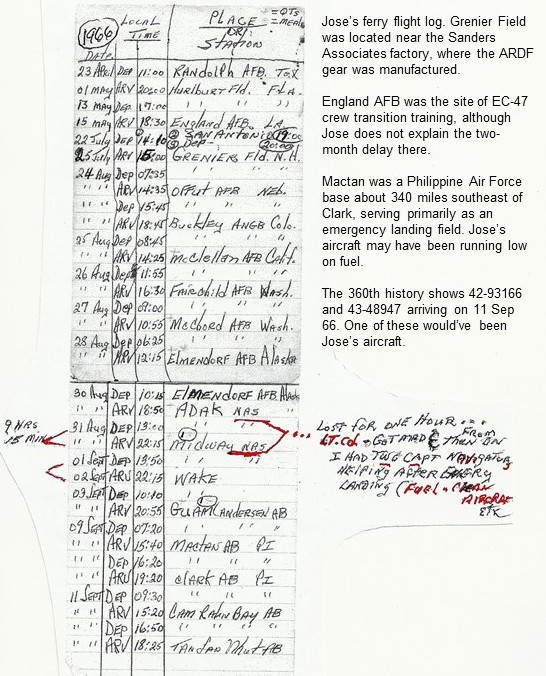 1966
LOCAL
TIME
PLACE
OR
STATION
=QTS
=MEAL
DATE
23 APRIL DEP 11:00 RANDOLPH AFB. TEX
01 MAY ARV 20:00 Hurlburt Fld. FLA.
13 MAY DEP 17:00 " " " "
15 MAY ARV 18:30 ENGLAND AFB. LA.
22 July DEP 14:10 SAN ANTONIO 19:00
DEP 20:00
25 July ARV 15:00 GRENIERS Fld. N.H.
24 Aug DEP 07:35 " " " "
" " ARV 14:35 Offut AFB Neb.
" " Dep 15:45 " " "
" " ARV 18:45 Buckley ANGB Colo.
25 Aug Dep 08:45 " " "
" " ARV 14:25 McClellan AFB Calif.
26 Aug Dep 11:55 " " "
" " ARV 16:30 Fairchild AFB Wash.
27 Aug Dep 09:00 " " "
" " ARV 10:55 McChord AFB Wash.
28 Aug Dep 06:25 " " "
" " ARV 12:15 Elmendorf AFB Alaska
30 Aug DEP 10:15 ELMENDORF AFB. Alaska
" " ARV 18:50 ADAK NAS "
31 Aug DEP 13:00 " "
" " ARV 22:15 Midway NAS
01 Sept DEP 13:50 " "
02 Sept ARV 22:15 WAKE
03 Sept DEP 10:10 "
" " ARV 20:55 GUAM ANDERSEN AB
09 Sept DEP 07:20 " " "
" " ARV 15:40 MACTAN AB PI
" " DEP 16:20 " " "
" " ARV 19:20 CLARK AB PI
11 SEPT DEP 09:30 " " "
" " ARV 15:20 CAM RAHN BAY AB
" " DEP 16:50 " " " "
" " ARV 18:25 TAN SON Nhut AB
9 HRS
15 MIN
LOST FOR ONE HOUR ....
LT. COL - GOT MAD & FROM THEN ON
I HAD TWO CAPT NAVIGATORS
HELPING AFTER EVERY
LANDING (FUEL - CLEAN
AIRCRAF
ETC
Jose's ferry flight log. Grenier Field
was located near the Sanders
Associates factory, where the ARDF
gear was manufactured.
England AFB was the site of EC-47
crew transition training, although
Jose does not explain the two-
month delay there.
Mactan was a Philippine Air Force
base about 340 miles southeast of
Clark, serving primarily as an
emergency landing field. Jose's
aircraft may have been running low
on fuel.
The 360th history shows 42-93166
and 43-48947 arriving on 11 Sep
66. One of these would've been
Jose's aircraft.